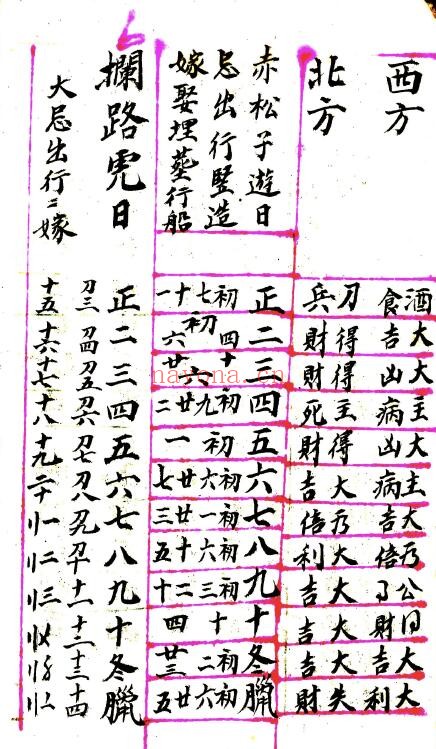 西方
酒食
大吉
大凶
主病
大凶
主病
大吉
大吉
大利
北方
刀兵
得財
得財
主死
得財
大吉
大利
大吉
大吉
大吉
失財
赤松子遊日
忌出行竪造
嫁娶埋葬行船
正二三四五六七八九十冬臘
初七十一
初四六
十廿六
初九廿二
初一
初六廿七
初一廿三
初六十五
初三二十
十四
初二廿三
初六廿五
攔路虎日
大忌出行〻嫁
正二三四五六七八九十冬臘
刀三刀四刀五刀六刀七刀八刀九刀十十一十二十三十四
十五十六十七十八十九二十
nayona.cn